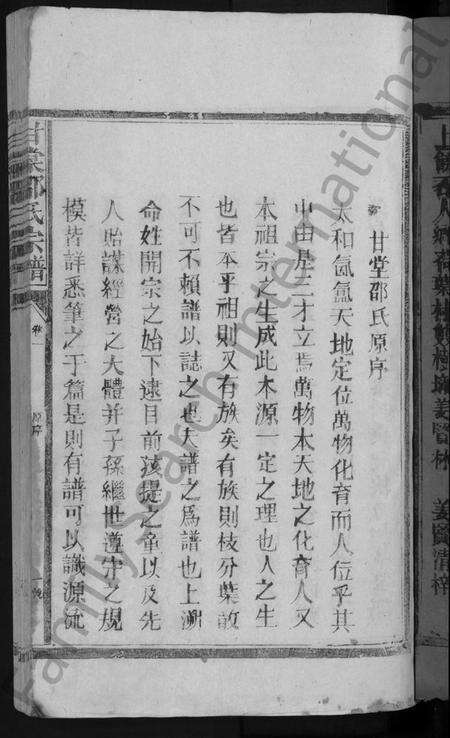 甘堂邵氏原序
太和氤氳天地定位萬物化育而人位乎其
中由是三才立焉萬物本天地之化育人又
本祖宗之生成此木源一定之理也人之生
也皆本乎祖則又有族矣有族則枝分葉散
不可不賴譜以誌之也夫譜之爲譜也上溯
命姓開宗之始下逮目前孩提之童以及先
人貽謀經營之大體并子孫繼世遵守之規
模皆詳悉筆之于篇是則有譜可以識源流
甘棠邵氏宗譜
卷一
原序
FamilySearch International